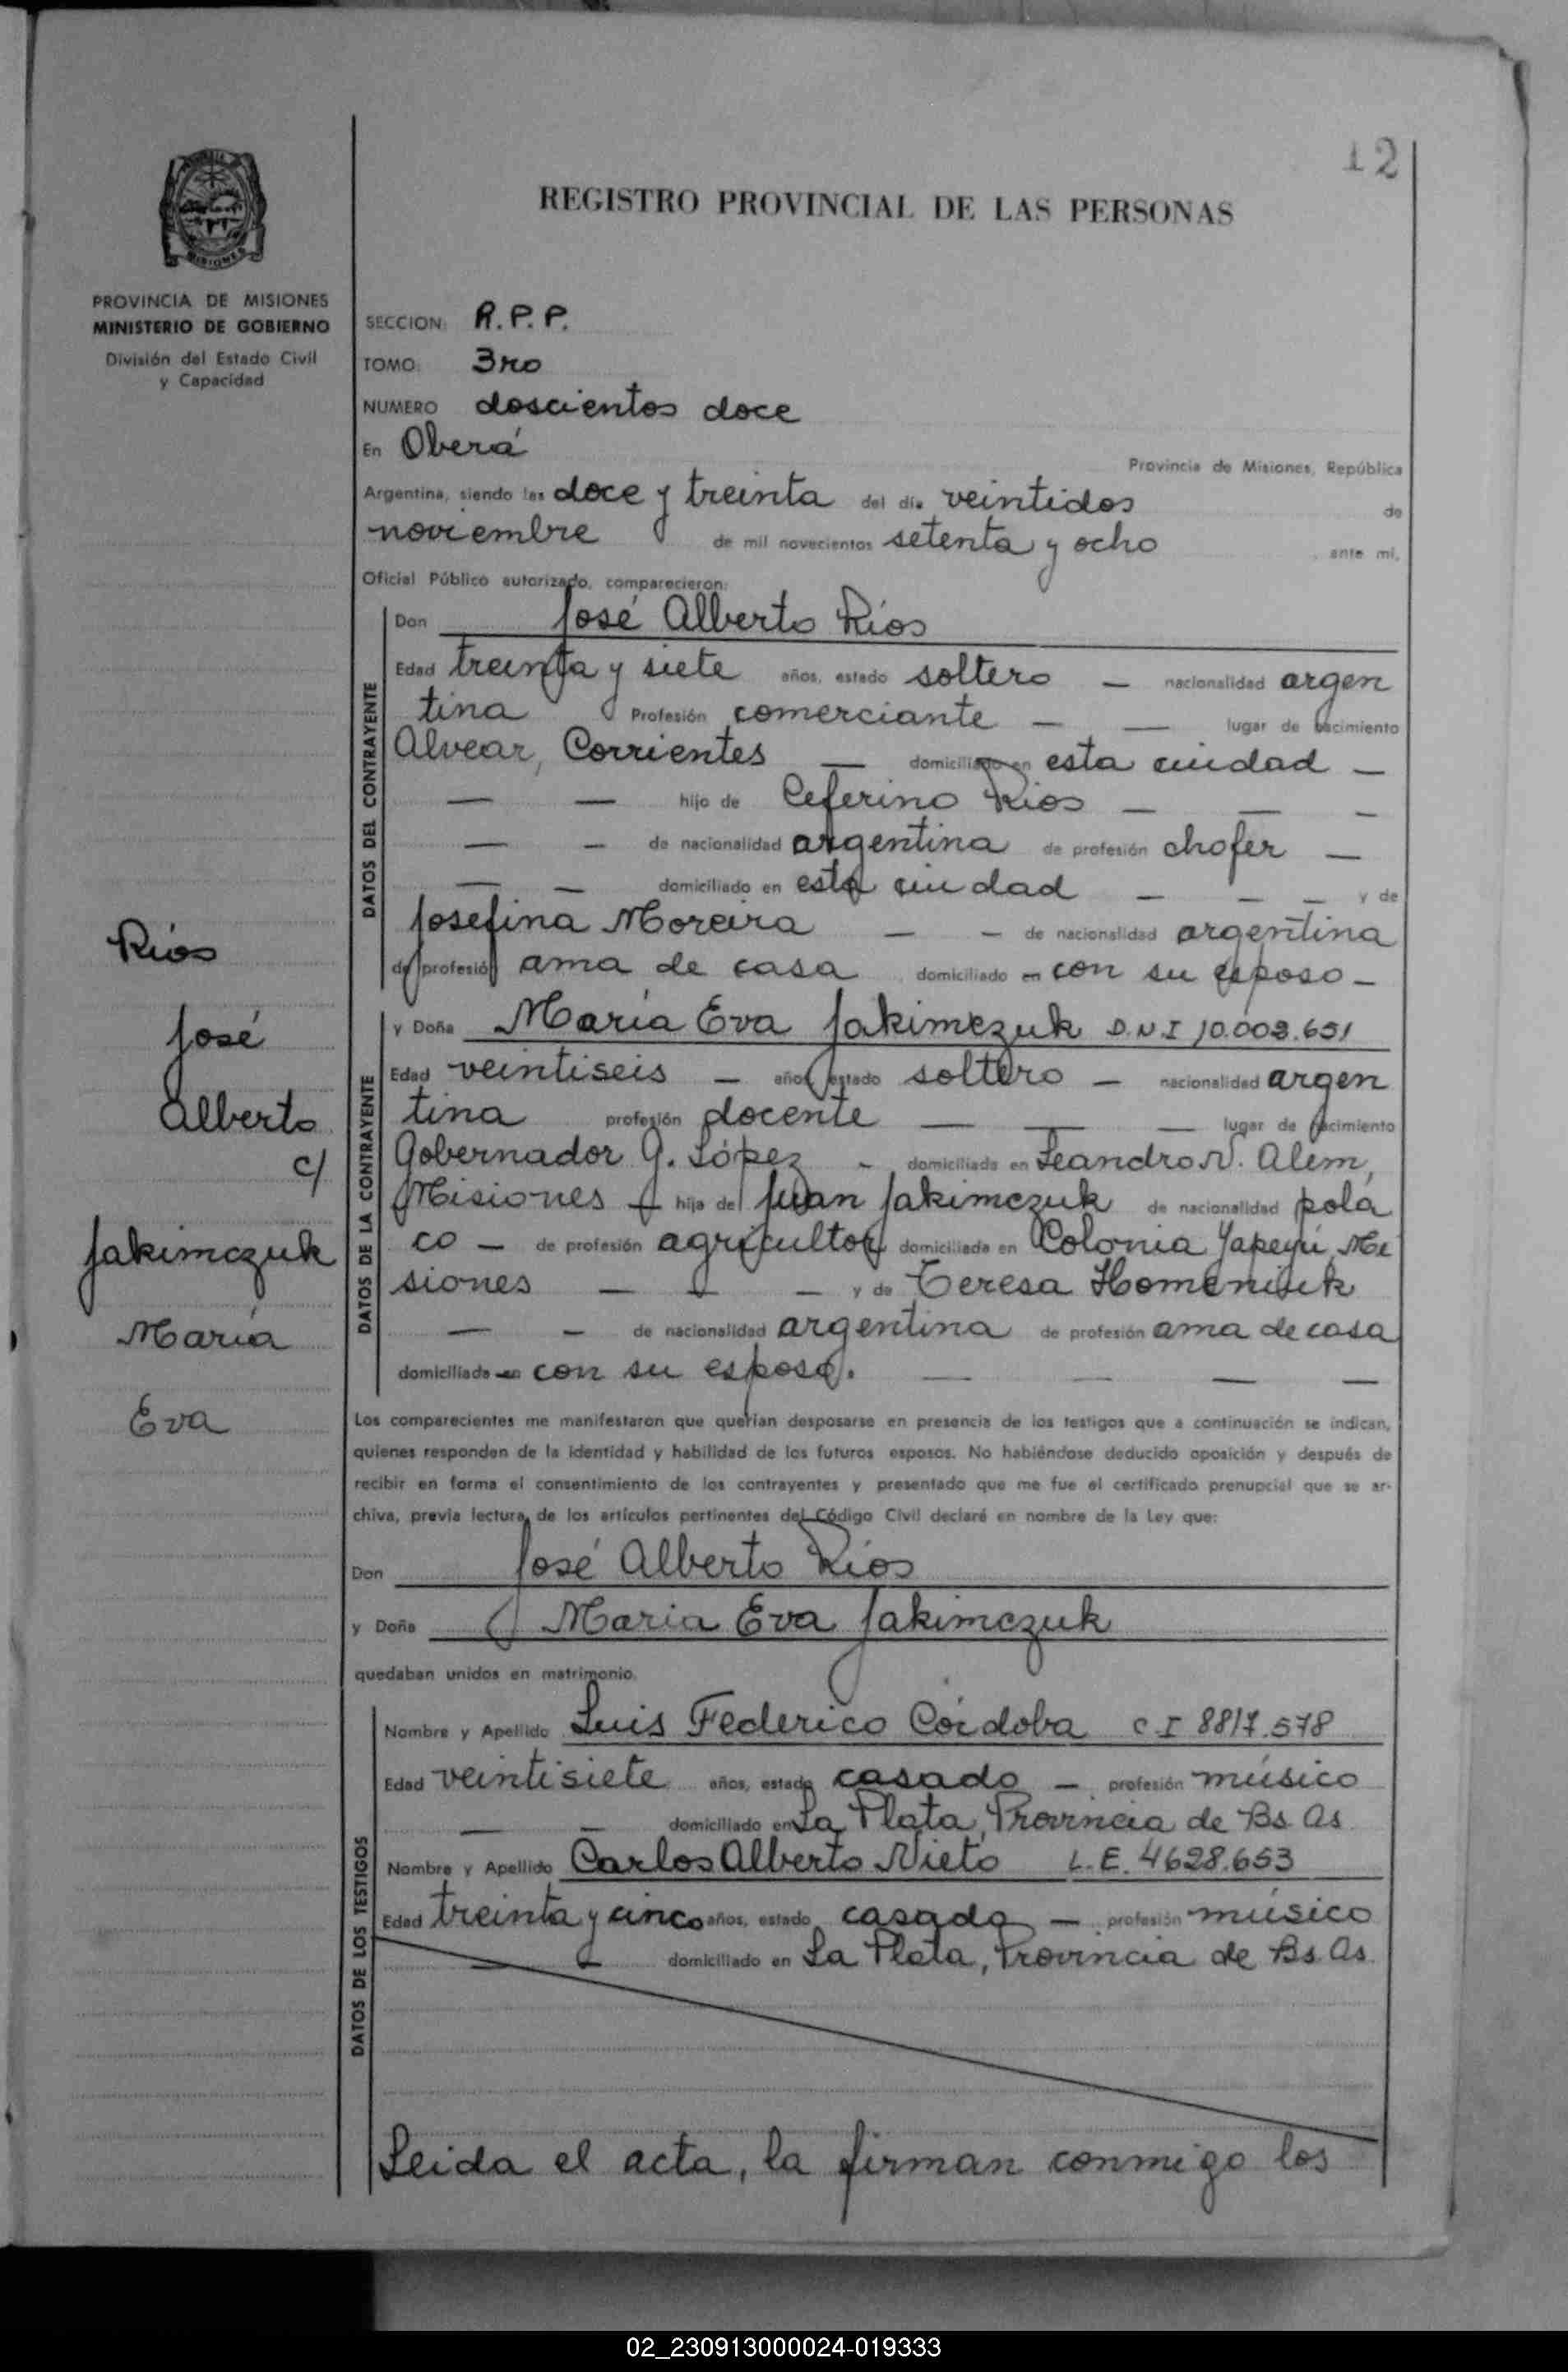 12
REGISTRO PROVINCIAL DE LAS PERSONAS
MISIONES
PROVINCIA DE MISIONES
MINISTERIO DE GOBIERNO
División del Estado Civil
y Capacidad
Rios
José
Alberto
c/
Jakimczuk
María
Eva
SECCION: R.P.P.
TOMO: 3ro
NUMERO doscientos doce
En Oberá
Provincia de Misiones, República
Argentina, siendo las doce y treinta del día veintidos de
noviembre de mil novecientos setenta y ocho ante mi,
Oficial Público autorizado, comparecieron:
DATOS DEL CONTRAYENTE
Don José Alberto Ríos
Edad treinta y siete años, estado soltero — nacionalidad argen
tina Profesión comerciante — — lugar de nacimiento
Alvear, Corrientes — domiciliado en esta ciudad —
— — hijo de Ceferino Rios — — —
— — de nacionalidad argentina de profesión chofer —
— — domiciliado en esta ciudad — — — y de
Josefina Moreira — — de nacionalidad argentina
de profesión ama de casa domiciliado en con su esposo —
DATOS DE LA CONTRAYENTE
y Doña María Eva Jakimczuk D.N.I 10.003.651
Edad veintiseis — años, estado soltero — nacionalidad argen
tina profesión docente — — — lugar de nacimiento
Gobernador G. López - domiciliada en Leandro N. Alem,
Misiones — hija de Juan Jakimczuk de nacionalidad pola
co — de profesión agricultor domiciliada en Colonia Yapeyú, Mi
siones — — — y de Teresa Homeniuk
— — de nacionalidad argentina de profesión ama de casa
domiciliada en con su esposo. — — — —
Los comparecientes me manifestaron que querían desposarse en presencia de los testigos que a continuación se indican,
quienes responden de la identidad y habilidad de los futuros esposos. No habiéndose deducido oposición y después de
recibir en forma el consentimiento de los contrayentes y presentado que me fue el certificado prenupcial que se ar-
chiva, previa lectura de los artículos pertinentes del Código Civil declaré en nombre de la Ley que:
Don José Alberto Ríos
y Doña María Eva Jakimczuk
quedaban unidos en matrimonio.
DATOS DE LOS TESTIGOS
Nombre y Apellido Luis Federico Córdoba C I 8817.578
Edad veintisiete años, estado casado — profesión músico
— — domiciliado en La Plata, Provincia de Bs. As
Nombre y Apellido Carlos Alberto Nieto L.E. 4628.653
Edad treinta y cinco años, estado casado — profesión músico
— — domiciliado en La Plata, Provincia de Bs. As.
Leida el acta, la firman conmigo los
02_230913000024-019333